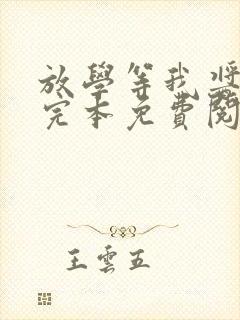 放學等我將
完本免費閱
王雲五